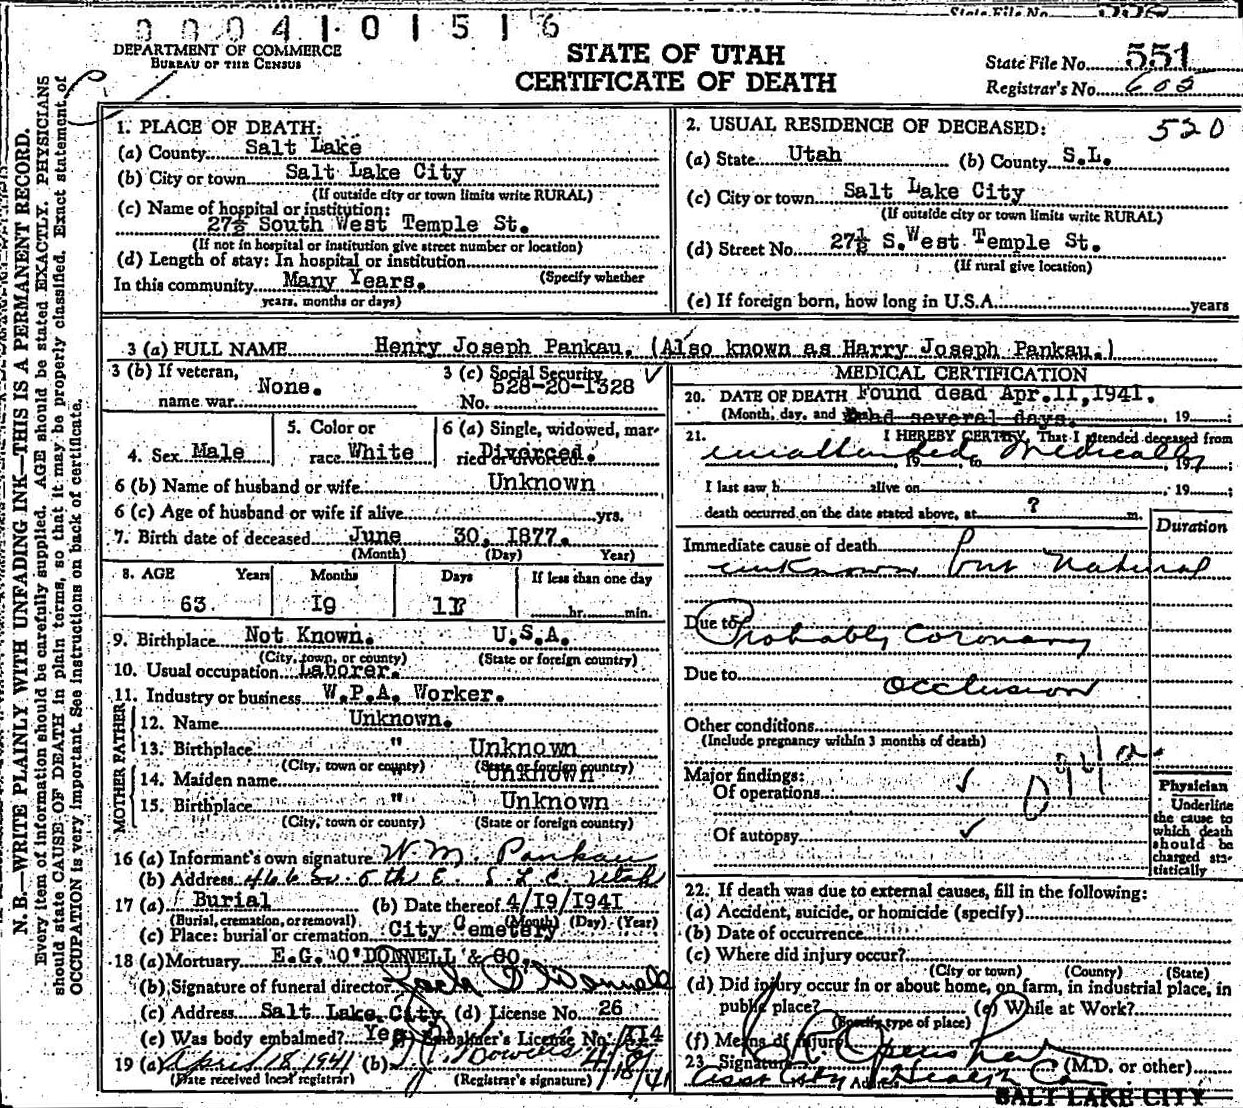 0 0 0 4 1 0 1 5 1 6
State File No.
DEPARTMENT OF COMMERCE
BUREAU OF THE CENSUS
STATE OF UTAH
CERTIFICATE OF DEATH
State File No. 551
Registrar's No. 605
N. B.—WRITE PLAINLY WITH UNFADING INK—THIS IS A PERMANENT RECORD.
Every item of information should be carefully supplied. AGE should be stated EXACTLY. PHYSICIANS
should state CAUSE OF DEATH in plain terms, so that it may be properly classified. Exact statement of
OCCUPATION is very important. See instructions on back of certificate.
1. PLACE OF DEATH:
(a) County Salt Lake
(b) City or town Salt Lake City
(If outside city or town limits write RURAL)
(c) Name of hospital or institution:
27½ South West Temple St.
(If not in hospital or institution give street number or location)
(d) Length of stay: In hospital or institution
(Specify whether
In this community Many Years.
years, months or days)
2. USUAL RESIDENCE OF DECEASED: 520
(a) State Utah (b) County S.L.
(c) City or town Salt Lake City
(If outside city or town limits write RURAL)
(d) Street No. 27½ S. West Temple St.
(If rural give location)
(e) If foreign born, how long in U.S.A. years
3 (a) FULL NAME Henry Joseph Pankau. (Also known as Harry Joseph Pankau.)
3 (b) If veteran,
name war None.
3 (c) Social Security
No. 528-20-1328
4. Sex Male
5. Color or
race White
6 (a) Single, widowed, mar-
ried or divorced Divorced.
6 (b) Name of husband or wife Unknown
6 (c) Age of husband or wife if alive yrs.
7. Birth date of deceased June 30, 1877.
(Month) (Day) Year)
8. AGE Years Months Days If less than one day
63 hr. min.
9. Birthplace Not Known. U.S.A.
(City, town, or county) (State or foreign country)
10. Usual occupation Laborer.
11. Industry or business W.P.A. Worker.
FATHER
12. Name Unknown.
13. Birthplace " Unknown
(City, town or county) (State or foreign country)
MOTHER
14. Maiden name " Unknown
15. Birthplace " Unknown
(City, town or county) (State or foreign country)
16 (a) Informant's own signature W. M. Pankau
(b) Address 466 So. 5th E. S.L.C. Utah
17 (a) Burial (b) Date thereof 4/19/1941
(Burial, cremation, or removal) (Month) (Day) (Year)
(c) Place: burial or cremation City Cemetery
18 (a) Mortuary E.G. O'DONNELL & CO.
(b) Signature of funeral director O'Donnell
(c) Address Salt Lake City (d) License No. 26
(e) Was body embalmed? Yes Embalmer's License No. 114
19 (a) April 18, 1941 (b) 4/18/41
(Date received local registrar) (Registrar's signature)
MEDICAL CERTIFICATION
20. DATE OF DEATH Found dead Apr.11,1941.
(Month, day, and Dead several days. 19
21. I HEREBY CERTIFY, That I attended deceased from
unattended Medically
19 to 19
I last saw h alive on , 19
death occurred on the date stated above, at ? m.
Duration
Immediate cause of death
unknown but Natural
Due to Probably Coronary
Due to
Occlusion
Other conditions
(Include pregnancy within 3 months of death)
Major findings:
Of operations ✓
Of autopsy ✓
94a
Physician
Underline
the cause to
which death
should be
charged sta-
tistically
22. If death was due to external causes, fill in the following:
(a) Accident, suicide, or homicide (specify)
(b) Date of occurrence
(c) Where did injury occur?
(City or town) (County) (State)
(d) Did injury occur in or about home, on farm, in industrial place, in
public place? (e) While at Work?
(Specify type of place)
(f) Means of injury
23. Signature (M.D. or other)
Asst City Health Com
Address
SALT LAKE CITY